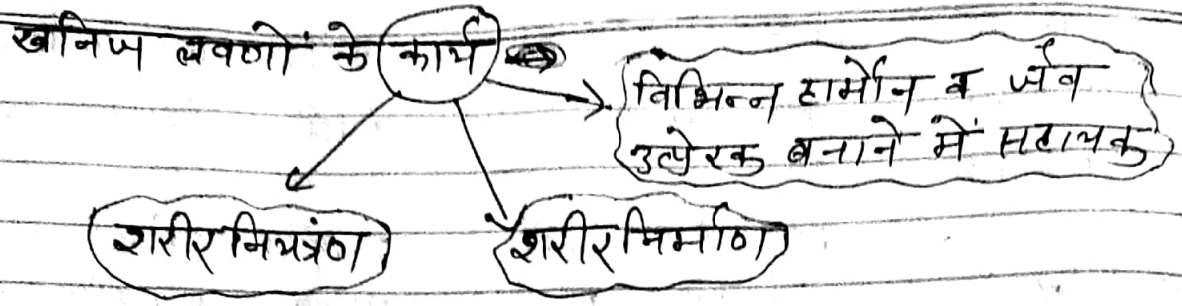 खनिज लवणों के कार्य
विभिन्न हार्मोन व जैव
उत्प्रेरक बनाने में सहायक
शरीर नियत्रंण
शरीर निर्माण